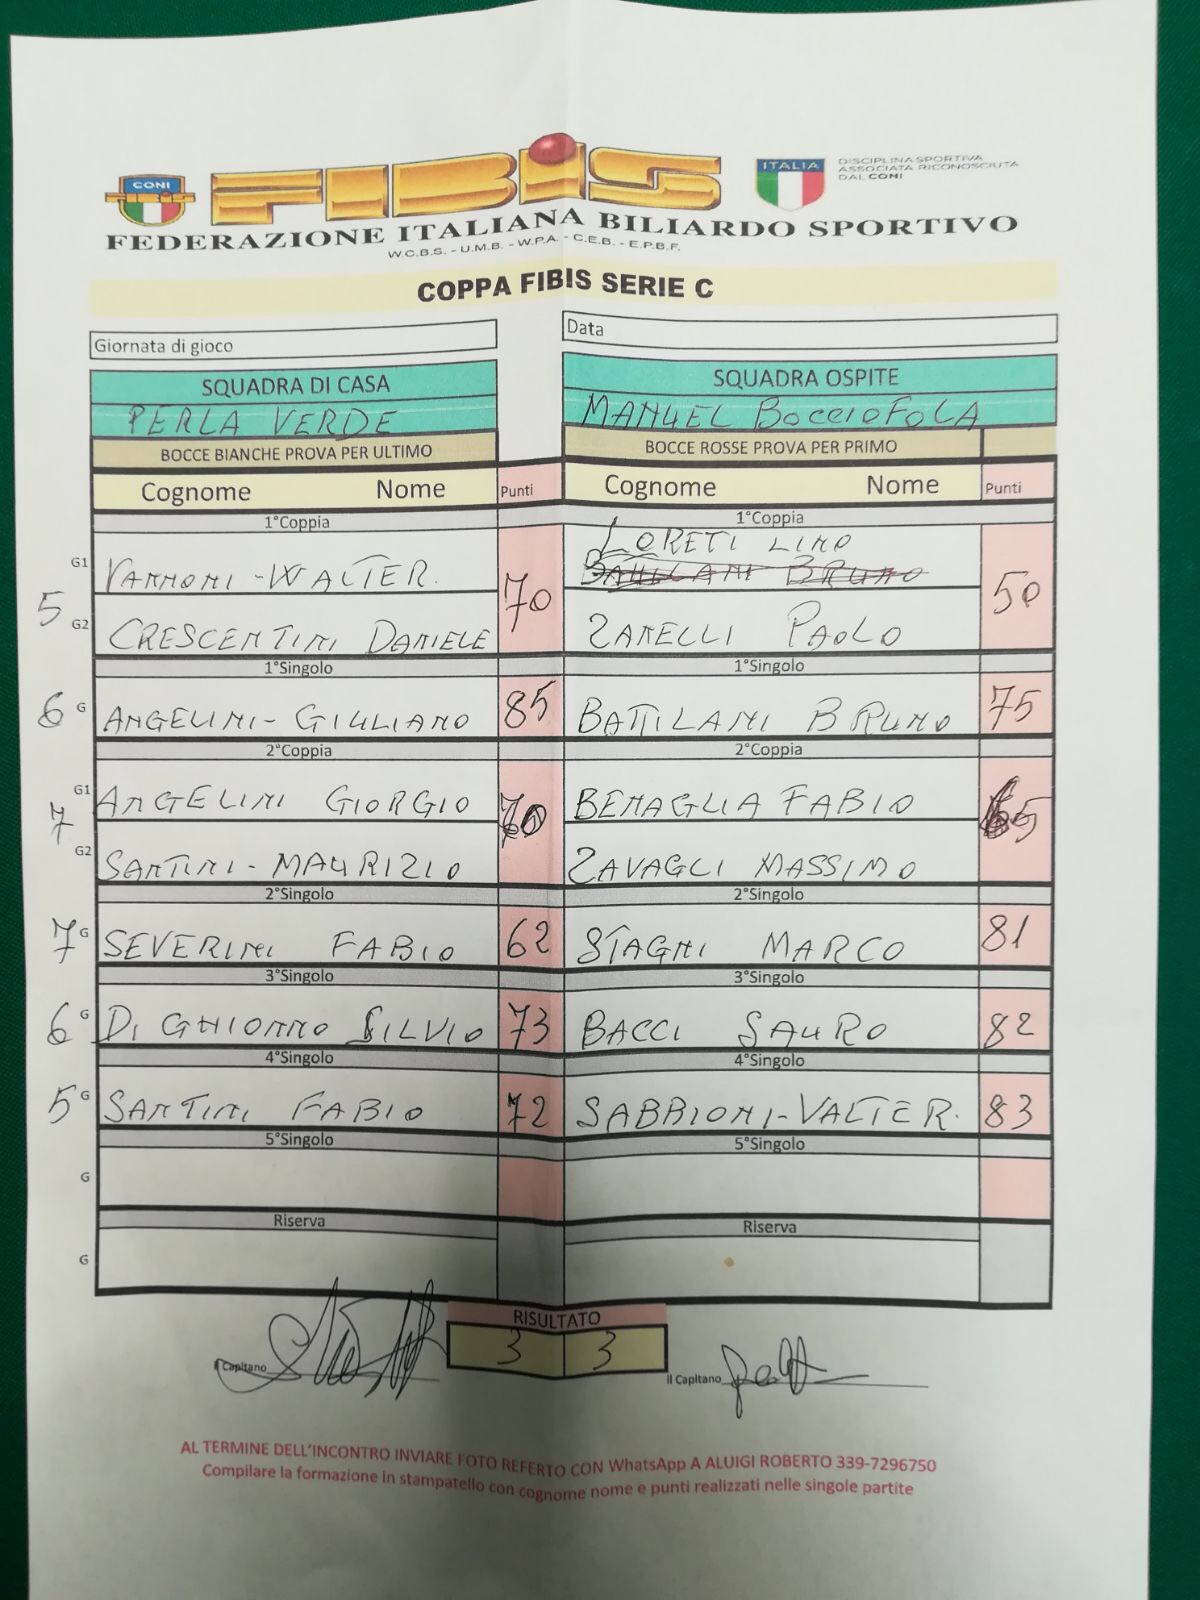 CONI
FIBIS
ITALIA
DISCIPLINA SPORTIVA
ASSOCIATA RICONOSCIUTA
DAL CONI
FEDERAZIONE ITALIANA BILIARDO SPORTIVO
W.C.B.S. - U.M.B. - W.P.A. - C.E.B. - E.P.B.F.
COPPA FIBIS SERIE C
Giornata di gioco
Data
SQUADRA DI CASA SQUADRA OSPITE
PERLA VERDE MANUEL BOCCIOFOLA
BOCCE BIANCHE PROVA PER ULTIMO BOCCE ROSSE PROVA PER PRIMO
Cognome Nome Punti Cognome Nome Punti
1°Coppia 1°Coppia
G1 VANNONI - WALTER. LORETI LINO
BATTILANI BRUNO
5 70 50
G2 CRESCENTINI DANIELE ZANELLI PAOLO
1°Singolo 1°Singolo
6 G ANGELINI - GIULIANO 85 BATTILANI BRUNO 75
2°Coppia 2°Coppia
G1 ANGELINI GIORGIO BENAGLIA FABIO
7 70 65
G2 SANTINI - MAURIZIO ZAVAGLI MASSIMO
2°Singolo 2°Singolo
7 G SEVERINI FABIO 62 STAGNI MARCO 81
3°Singolo 3°Singolo
6 G DI GHIONNO SILVIO 73 BACCI SAURO 82
4°Singolo 4°Singolo
5 G SANTINI FABIO 72 SABBIONI - VALTER. 83
5°Singolo 5°Singolo
G
Riserva Riserva
G
RISULTATO
3 3
Il Capitano Il Capitano
AL TERMINE DELL'INCONTRO INVIARE FOTO REFERTO CON WhatsApp A ALUIGI ROBERTO 339-7296750
Compilare la formazione in stampatello con cognome nome e punti realizzati nelle singole partite